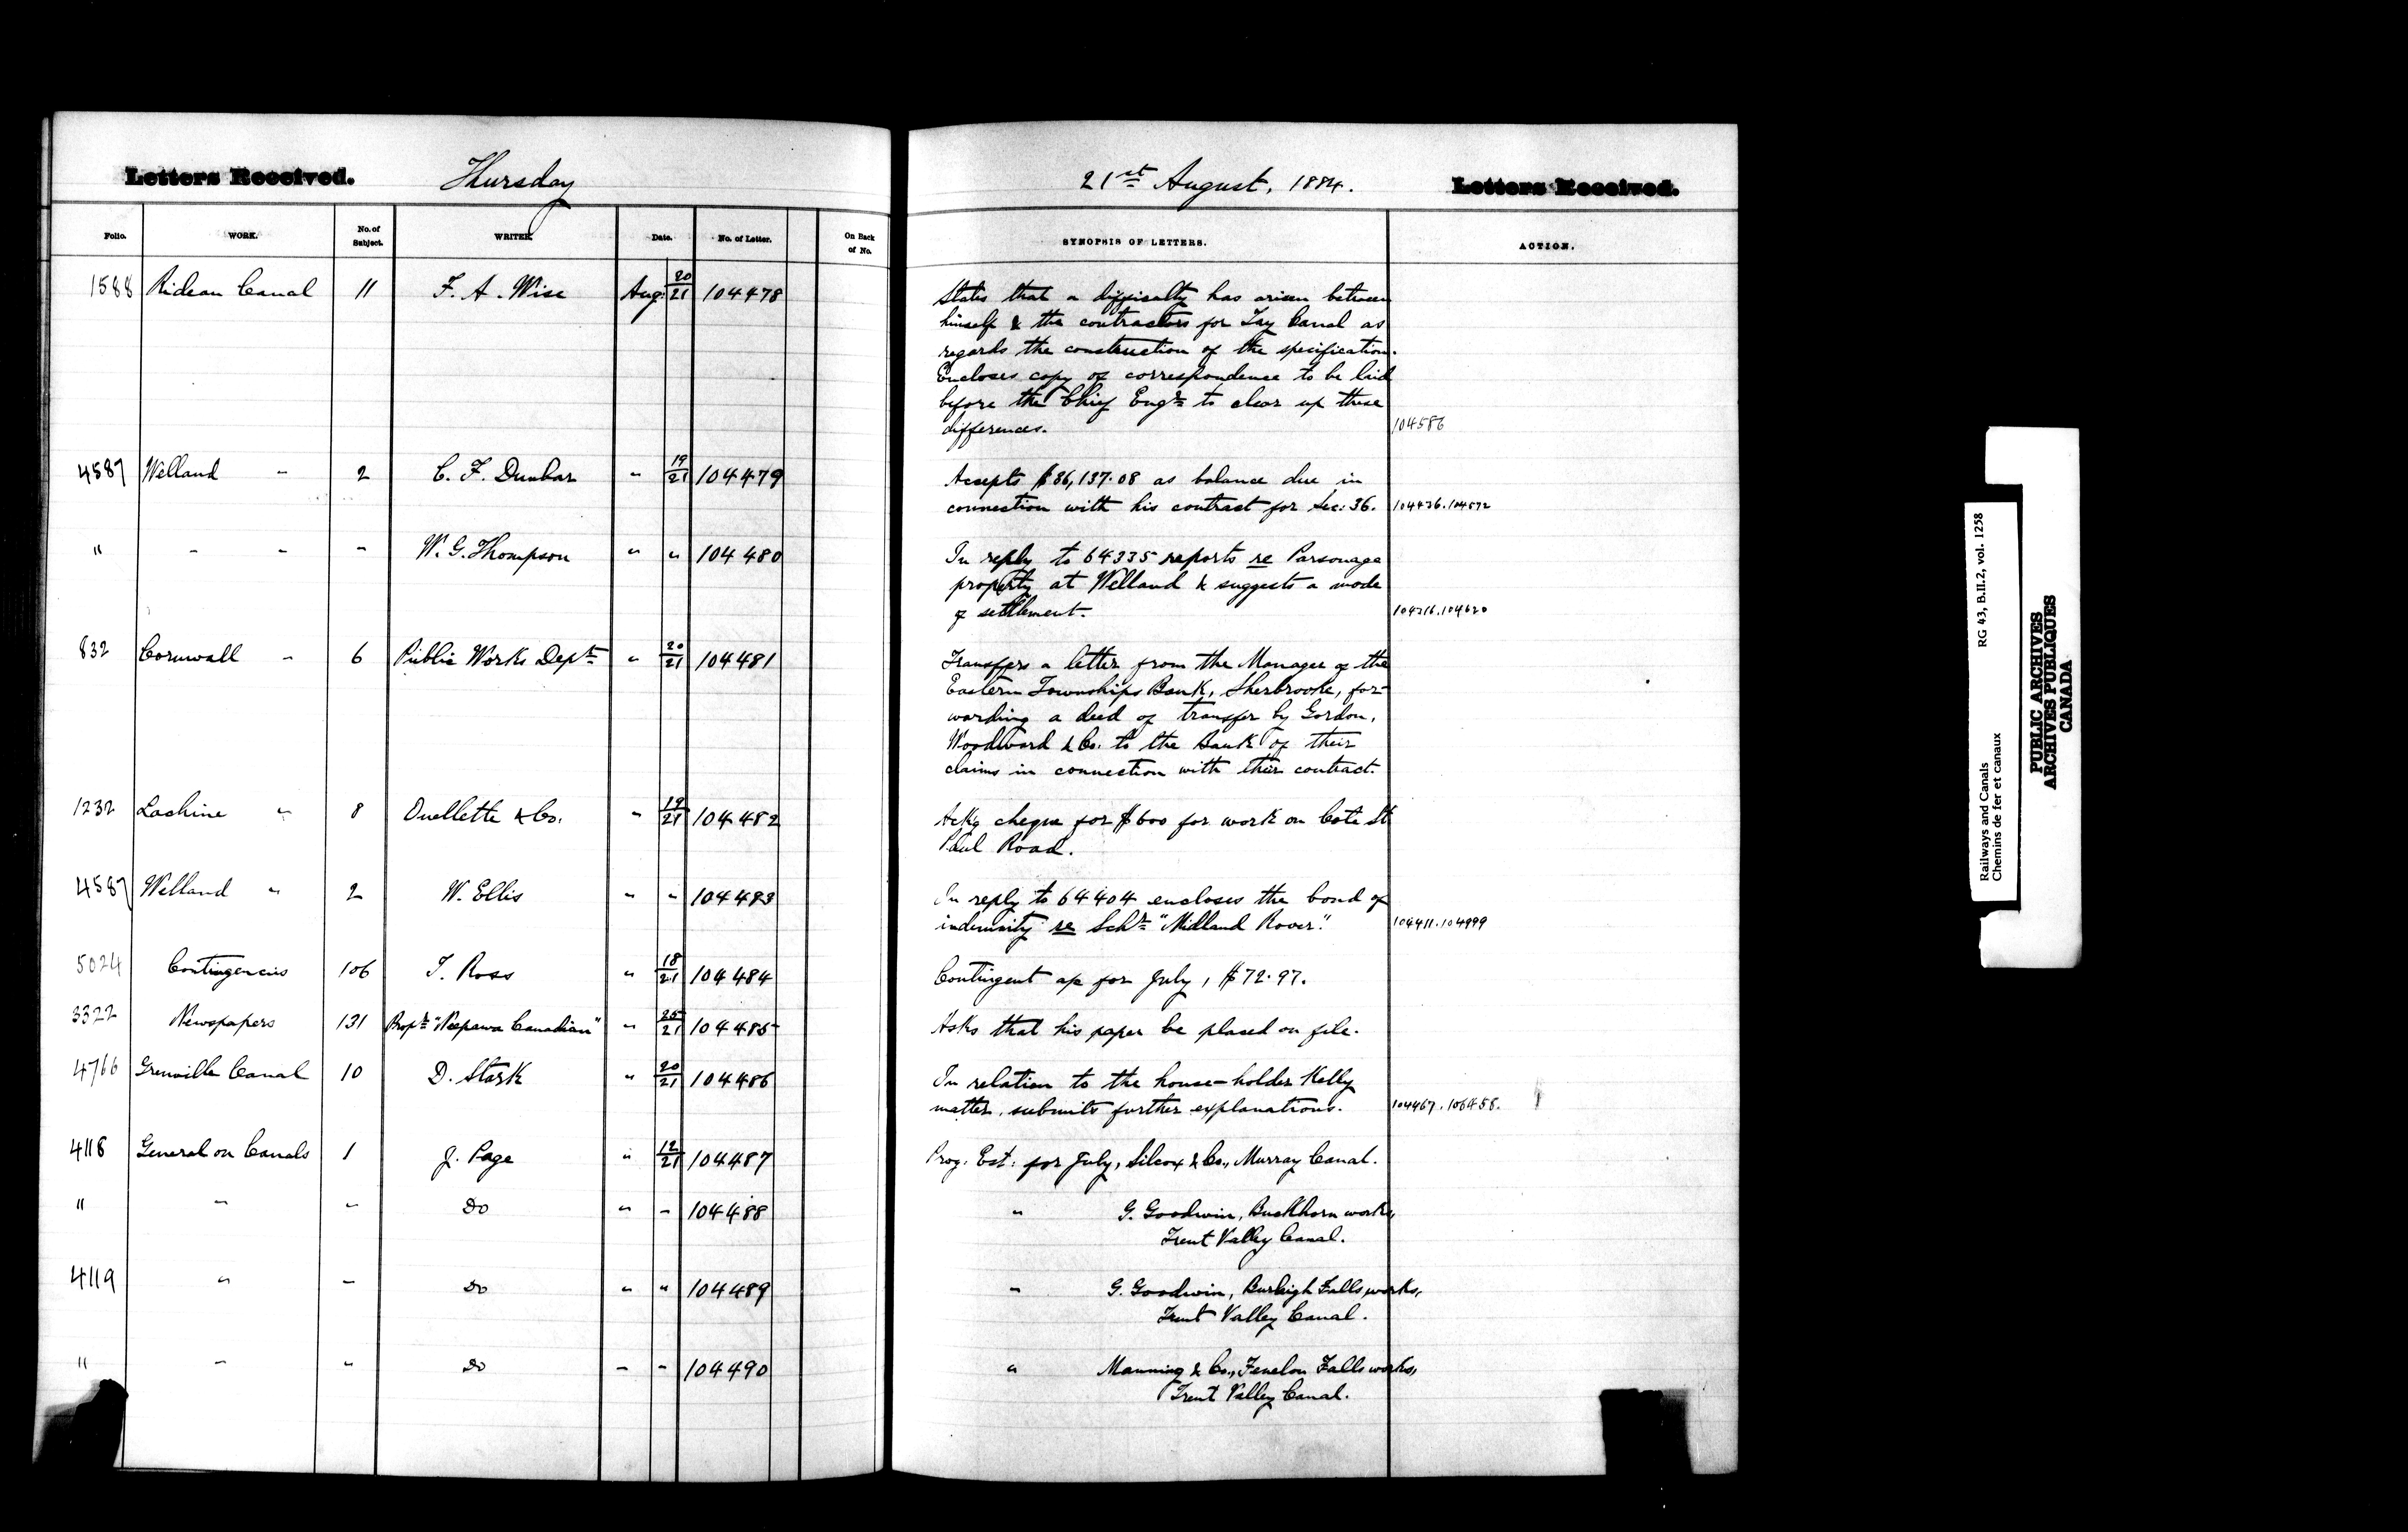 Letters Received. Thursday
21st August, 1884. Letters Received.
Folio. WORK. No. of Subject. WRITER. Date. No. of Letter. On Back of No. SYNOPSIS OF LETTERS. ACTION.
1588 Rideau Canal 11 F. A. Wise Aug: 20/21 104478 States that a difficulty has arisen between
himself & the contractors for Tay Canal as
regards the construction of the specification.
Encloses copy of correspondence to be laid
before the Chief Engr. to clear up these
differences. 104586
4587 Welland " 2 C. F. Dunbar " 19/21 104479 Accepts $86,137.08 as balance due in
connection with his contract for Sec: 36. 104436.104572
" " " " W. G. Thompson " " 104480 In reply to 64335 reports re Parsonage
property at Welland & suggests a mode
of settlement. 104316.104620
832 Cornwall " 6 Public Works Dept. " 20/21 104481 Transfers a letter from the Manager of the
Eastern Townships Bank, Sherbrooke, for-
warding a deed of transfer by Gordon,
Woodward & Co. to the Bank of their
claims in connection with their contract.
1232 Lachine " 8 Ouellette & Co. " 19/21 104482 Ackg cheque for $600 for work on Cote St
Paul Road.
4587 Welland " 2 W. Ellis " " 104483 In reply to 64404 encloses the bond of
indemnity re Schr. "Midland Rover". 104411.104999
5024 Contingencies 106 T. Ross " 18/21 104484 Contingent a/c for July, $72.97.
3322 Newspapers 131 Propr. "Neepawa Canadian" " 21 104485 Asks that his paper be placed on file.
4766 Grenville Canal 10 D. Stark " 20/21 104486 In relation to the house-holder Kelly
matter, submits further explanations. 104467.106458.
4118 General on Canals 1 J. Page " 12/21 104487 Prog. Est: for July, Silcox & Co., Murray Canal.
" " " Do " " 104488 " G. Goodwin, Buckhorn works,
Trent Valley Canal.
4119 " " Do " " 104489 " G. Goodwin, Burleigh Falls works,
Trent Valley Canal.
" " " Do " " 104490 " Manning & Co., Fenelon Falls works,
Trent Valley Canal.
Railways and Canals RG 43, B.II.2, vol. 1258
Chemins de fer et canaux
PUBLIC ARCHIVES
ARCHIVES PUBLIQUES
CANADA